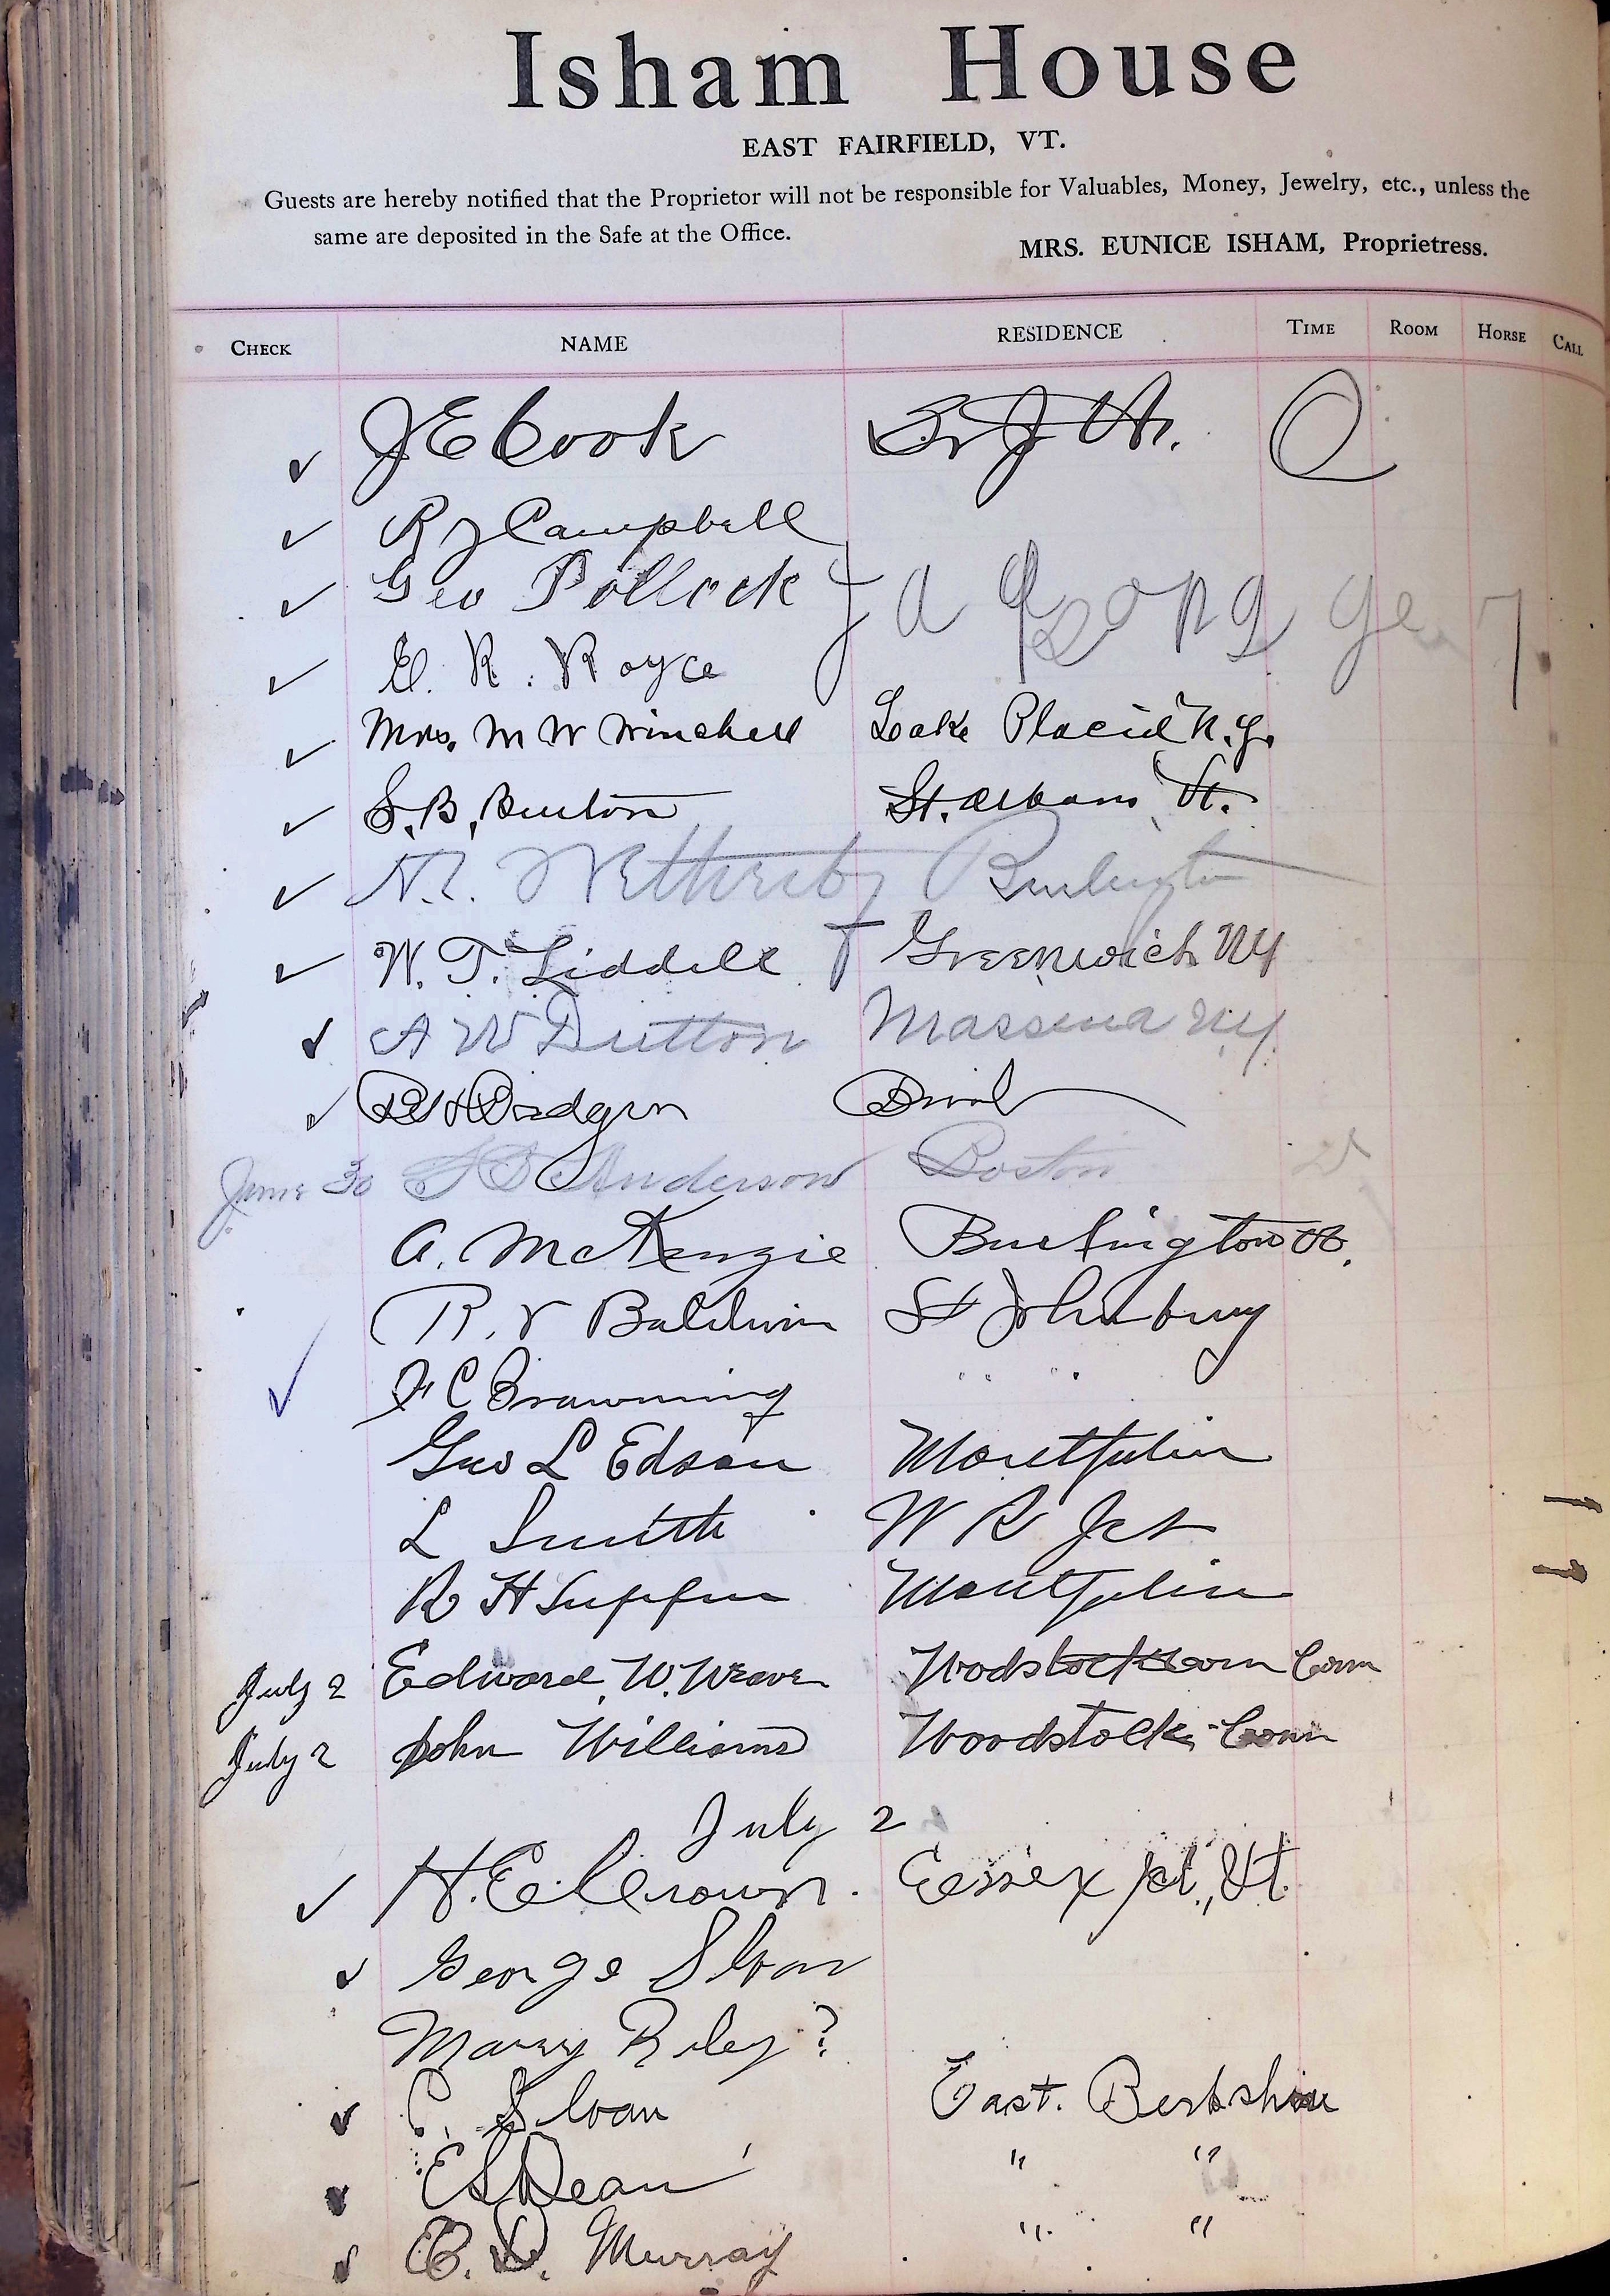 Isham House
EAST FAIRFIELD, VT.
Guests are hereby notified that the Proprietor will not be responsible for Valuables, Money, Jewelry, etc., unless the
same are deposited in the Safe at the Office.
MRS. EUNICE ISHAM, Proprietress.
CHECK NAME RESIDENCE TIME ROOM HORSE CALL
✓ J E Cook
✓ R J Campbell
✓ Geo Pollock
✓ E. R. Royce
✓ Mrs. M W Winchell Lake Placid N.Y.
✓ S. B. Burton St. Albans Vt.
✓ Wetherby Burlington
✓ W. T. Liddell Greenwich NY
✓ A W Dutton Massena NY
✓
June 30 Anderson Boston
A. McKenzie Burlington Vt.
R. V Baldwin St Johnsbury
✓ F C Browning " "
Geo L Edson Montpelier
L Smith W R Jct
R H Montpelier
July 2 Edward. W. Weaver Conn
July 2 John Williams Woodstock Conn
July 2
✓ H. E. Crown. Essex Jct., Vt.
✓ George Sloan
Marry Riley?
✓ C. Sloan East. Berkshire
✓ E S Dean " "
✓ C. D. Murray " "